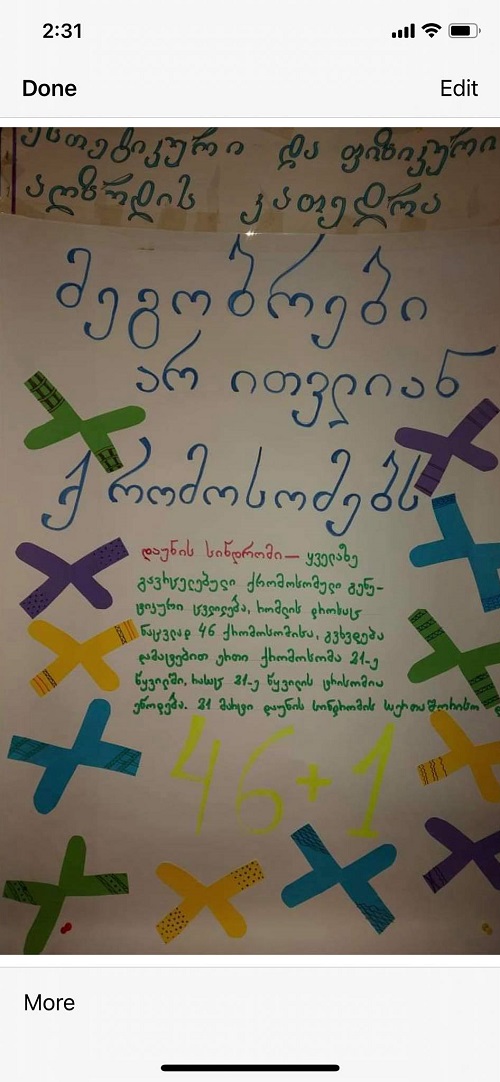 2:31
Done
Edit
ესთეტიკური და ფიზიკური
აღზრდის კათედრა
მეგობრები
არ ითვლიან
ქრომოსომებს
დაუნის სინდრომი — ყველაზე
გავრცელებული ქრომოსომული გენე-
ტიკური ცვლილება, რომლის დროსაც
ნაცვლად 46 ქრომოსომისა, გვხვდება
დამატებით ერთი ქრომოსომა 21-ე
წყვილში, რასაც 21-ე წყვილის ტრისომია
ეწოდება. 21 მარტი დაუნის სინდრომის საერთაშორისო
46+1
More